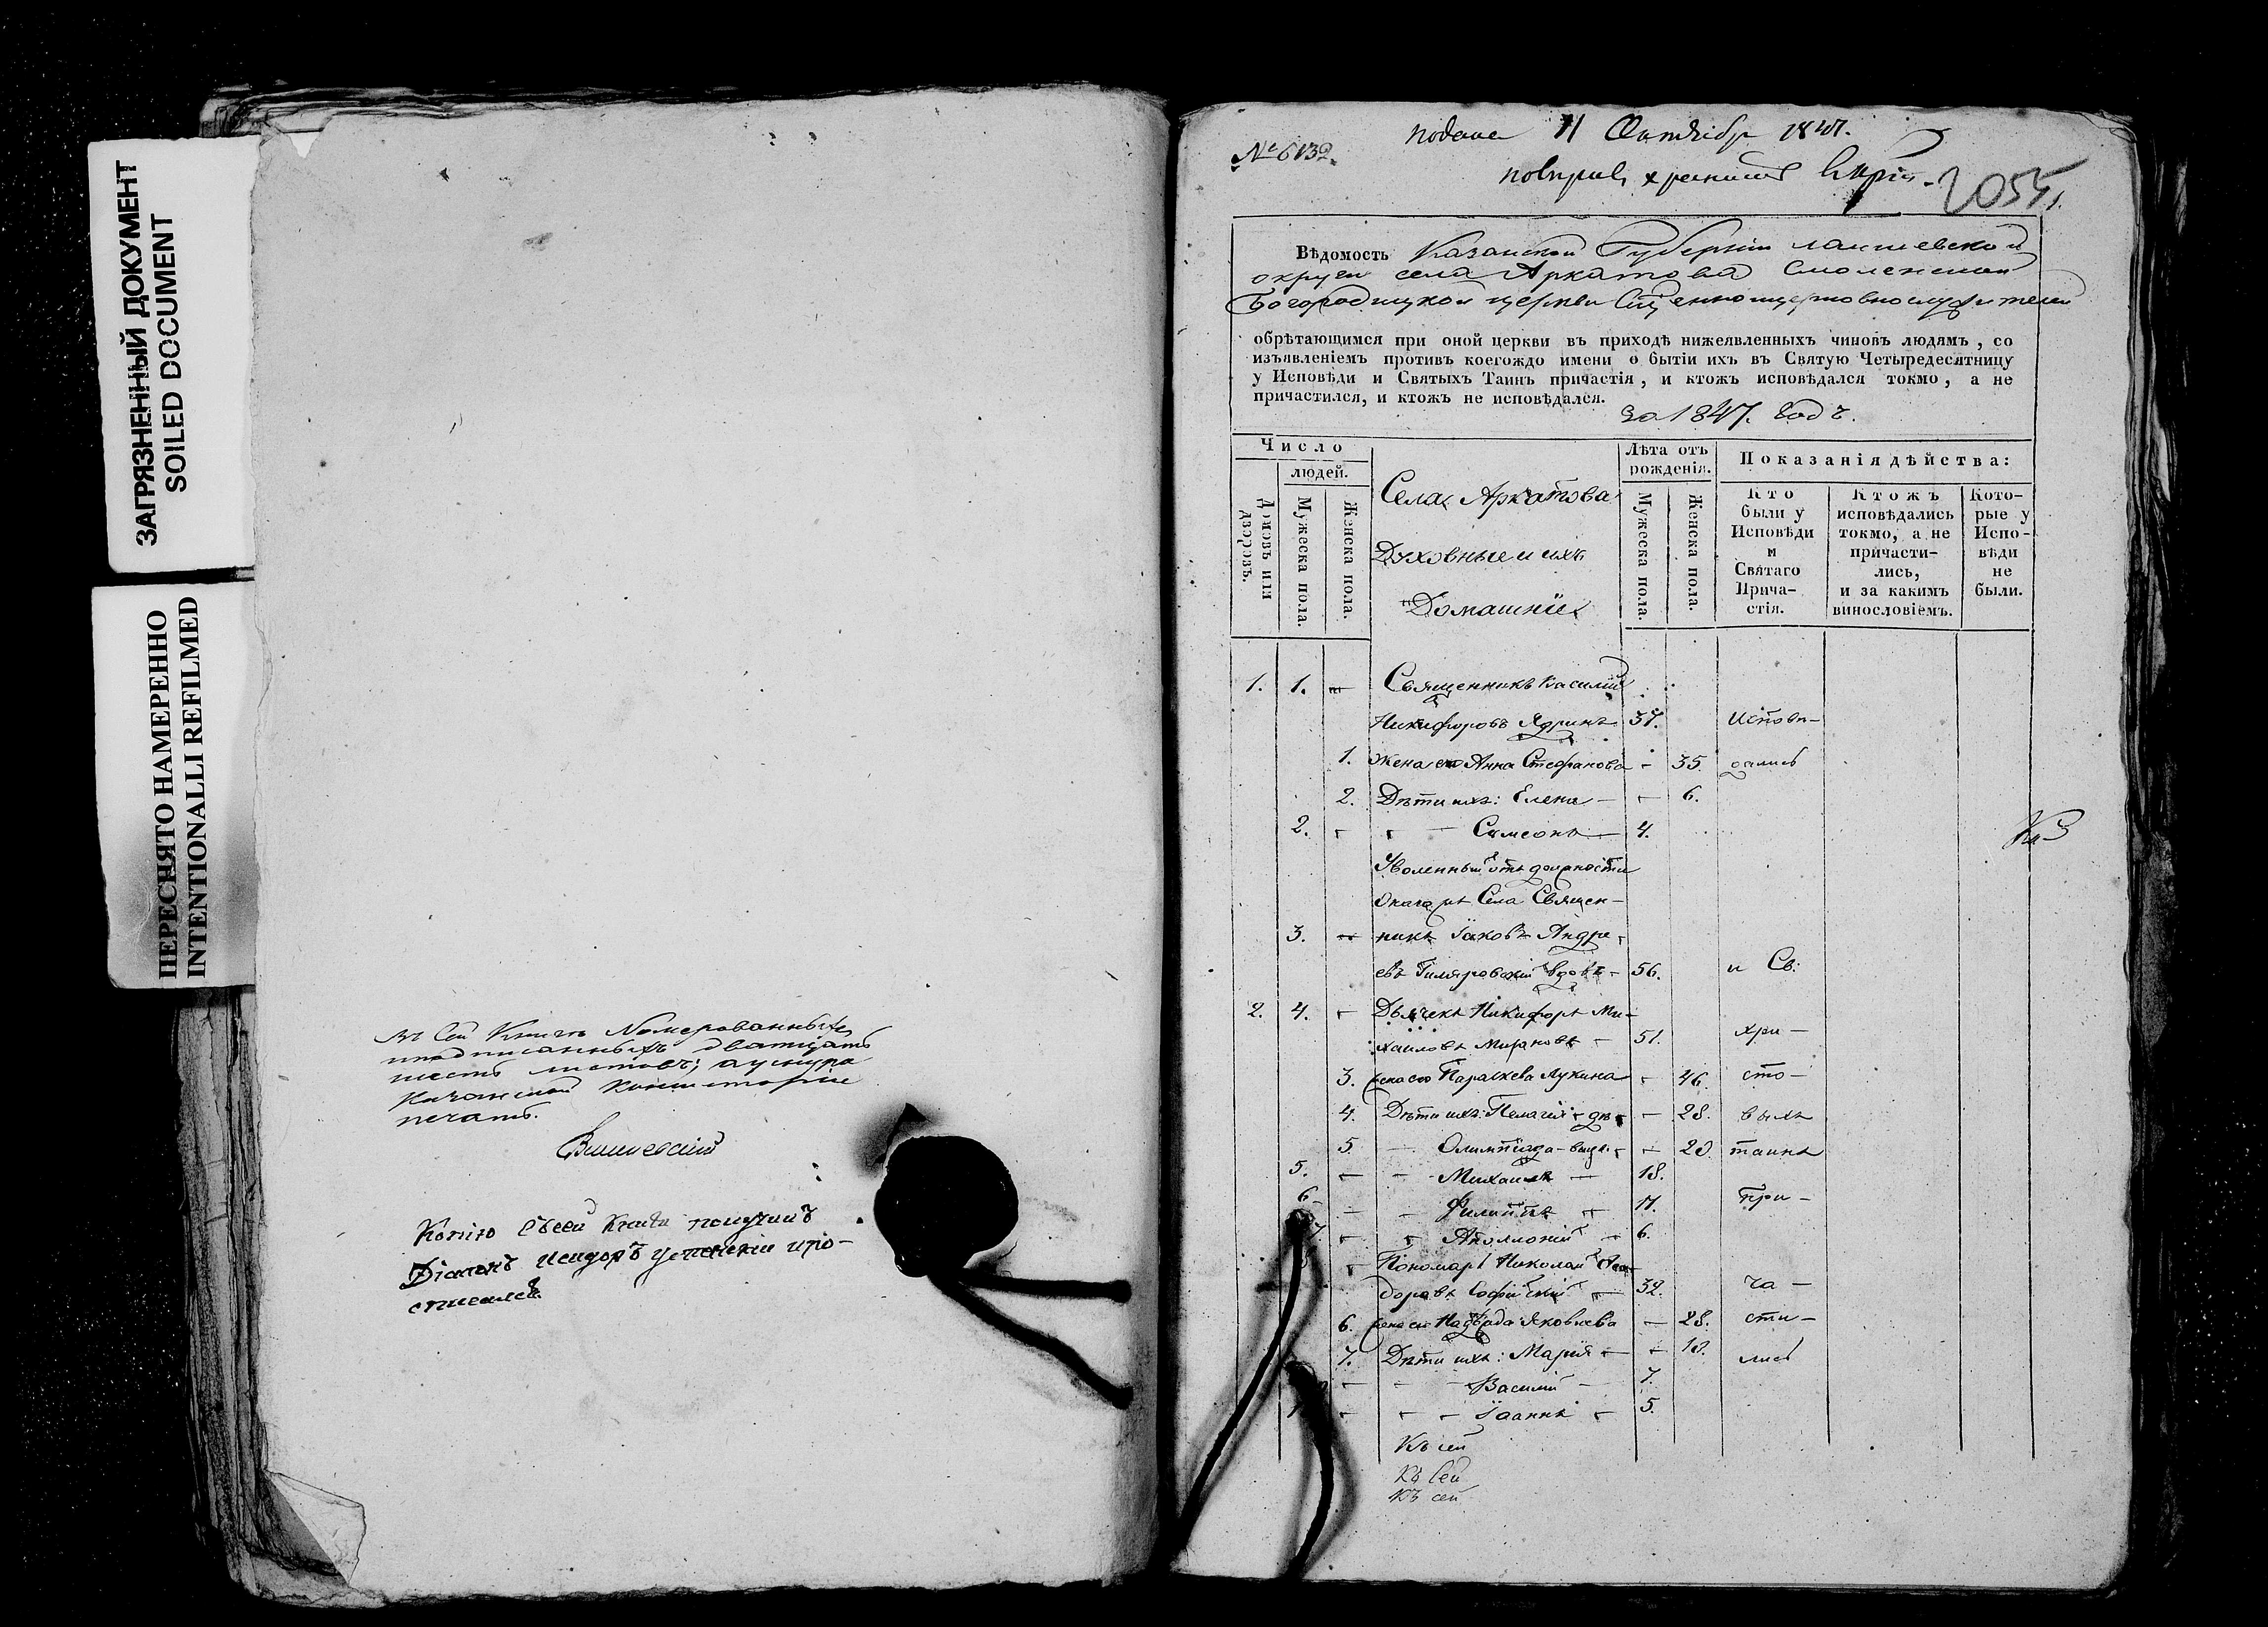 ЗАГРЯЗНЕННЫЙ ДОКУМЕНТ
SOILED DOCUMENT
ПЕРЕСНЯТО НАМЕРЕННО
INTENTIONALLI REFILMED
въ Сей Книгѣ Номерованныхъ
и подписанныхъ дватцать
шесть листовъ; а у шнура
Казанской Консисторіи
печать.
Копію съ сей Книги получилъ
Діаконъ Исидоръ Успенскій
№ 6132.
подана 11 Октябр 1847.
2055
Вѣдомость Казанской Губерніи Лаишевской
округи села Аркатова Смоленской
Богородицкой церкви Священноцерковнослужителей
обрѣтающимся при оной церкви въ приходѣ нижеявленныхъ чиновъ людямъ, со
изъявленіемъ противъ коегождо имени о бытіи ихъ въ Святую Четыредесятницу
у Исповѣди и Святыхъ Таинъ причастія, и ктожъ исповѣдался токмо, а не
причастился, и ктожъ не исповѣдался.
за 1847. годъ.
Число
людей.
Домовъ или дворовъ.
Мужеска пола.
Женска пола.
Села Аркатова
Духовные и ихъ
Домашніе
Лѣта отъ рожденія.
Мужеска пола.
Женска пола.
Показанія дѣйства:
Кто были у Исповѣди и Святаго Причастія.
Ктожъ исповѣдались токмо, а не причастились, и за какимъ винословіемъ.
Которые у Исповѣди не были.
1. 1. Священникъ Василій
Никифоровъ Ядринъ 37. Исповѣ-
1. Жена его Анна Стефанова - 35. дались
2. Дѣти ихъ: Елена - - 6.
2. Симеонъ - 4.
Уволенный отъ должности
онаго же Села Священ-
3. никъ Іаковъ Андре-
евъ Гиляровскій вдовъ - 56. и Св:
2. 4. Дьячекъ Никифоръ Ми-
хаиловъ Мирановъ - 51. Хри-
3. Жена его Параскева Лукина - 46. сто-
4. Дѣти ихъ: Пелагія - 28. выхъ
5. Олимпіада - 20. таинъ
5. Михаилъ - 18.
6. Филиппъ 11. При-
7. Аполлоній - 6.
Пономарь Николай Ѳео-
доровъ Софійскій 32. ча-
6. Жена его Надежда Яковлева - 28. сти-
7. Дѣти ихъ: Марія - 10. лись
Василій - 7.
Іоаннъ 5.
Къ сей
Къ Сей
Къ сей